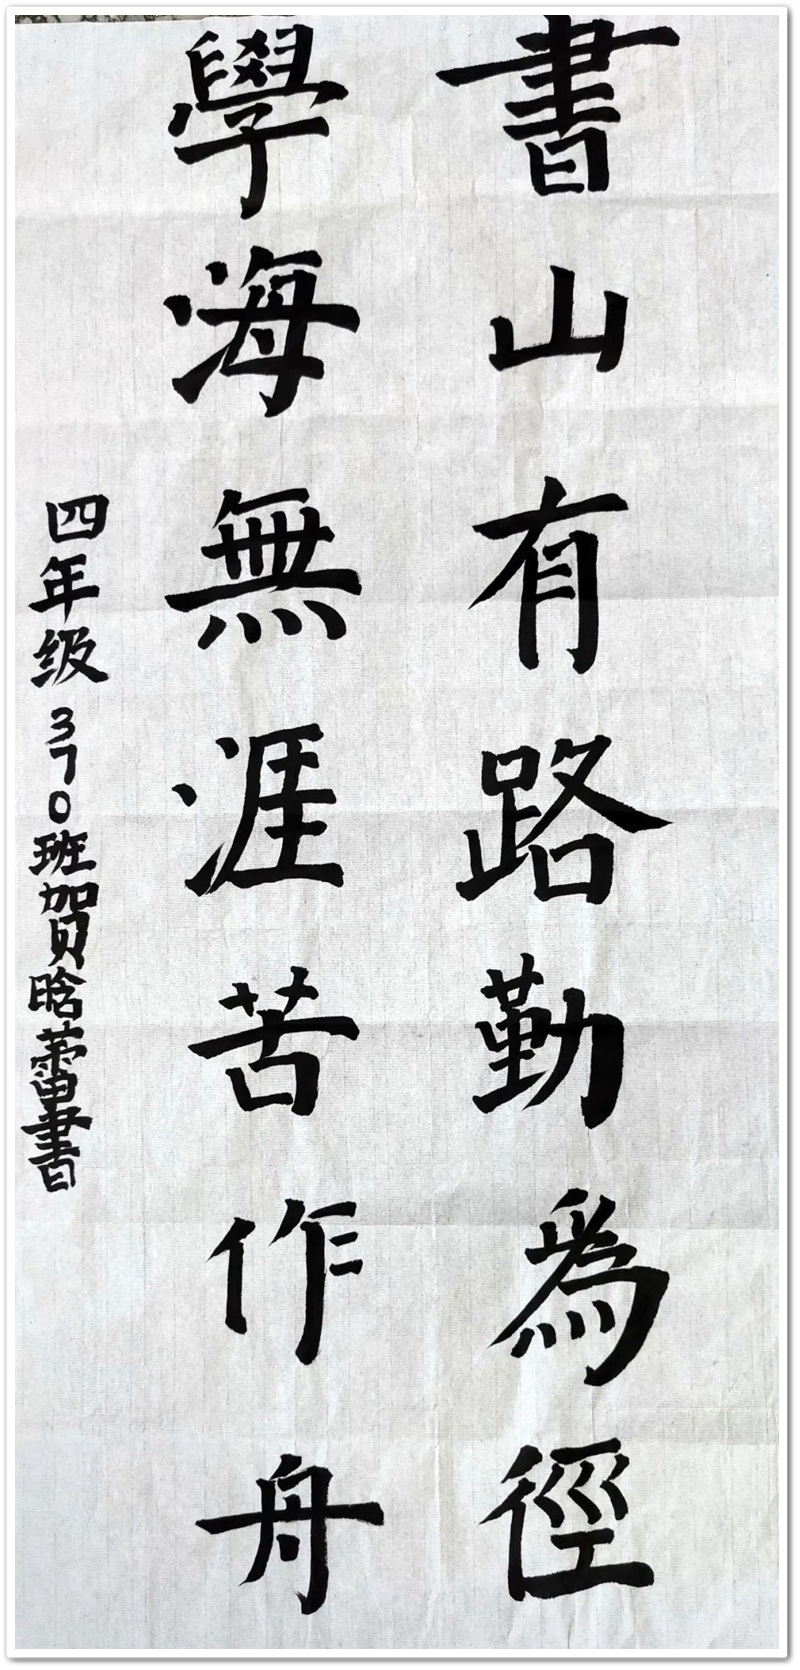 書山有路勤為徑
學海無涯苦作舟
四年级370班賀晗蕾書